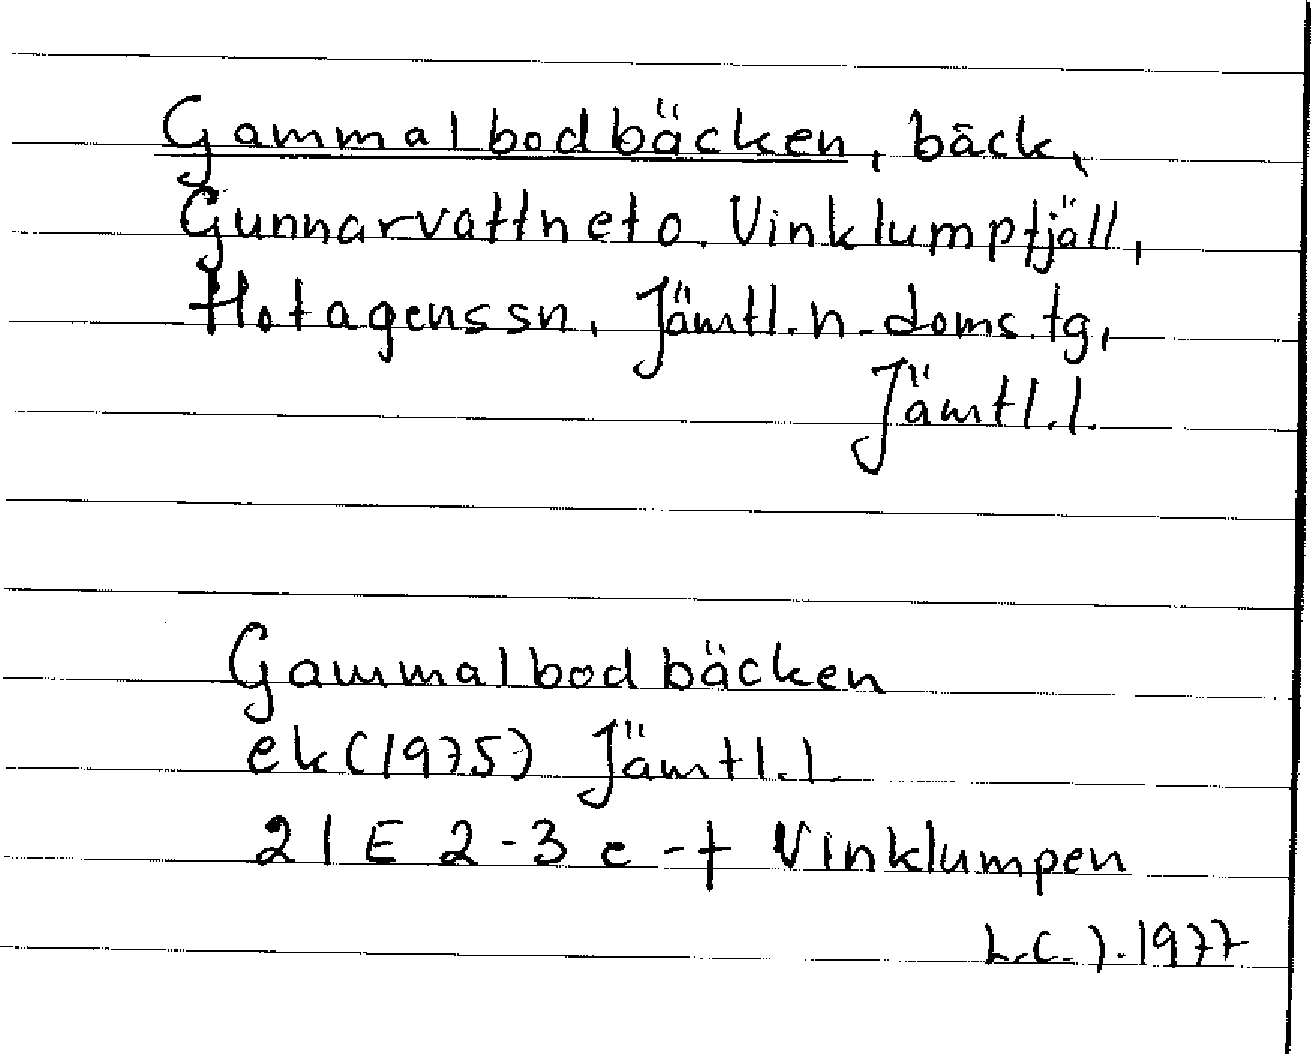 Gammalbodbäcken, bäck,
Gunnarvattnet o. Vinklumpfjäll,
Hotagens sn, Jämtl. n. doms. tg,
Jämtl. l.
Gammalbodbäcken
ek (1975) Jämtl. l.
21 E 2-3 e-f Vinklumpen
L.C.J. 1977